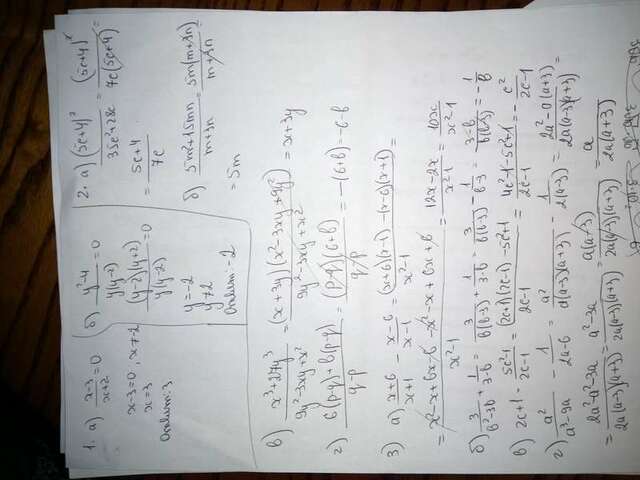 1. а) (x-3)/(x+2) = 0
x-3=0, x≠-2
x=3
Ответ: 3
б) (y²-4)/(y(y-2)) = 0
((y-2)(y+2))/(y(y-2)) = 0
y=-2
y≠2
Ответ: -2
2. а) (5c+4)²/(35c²+28c) = (5c+4)²/(7c(5c+4)) =
= (5c+4)/(7c)
б) (5m²+15mn)/(m+3n) = (5m(m+3n))/(m+3n) =
= 5m
в) (x³+27y³)/(9y²-3xy+x²) = ((x+3y)(x²-3xy+9y²))/(9y²-3xy+x²) = x+3y
г) (6(p-q)+b(p-q))/(q-p) = ((p-q)(6+b))/(q-p) = -(6+b) = -6-b
3) а) (x+6)/(x+1) - (x-6)/(x-1) = ((x+6)(x-1)-(x-6)(x+1))/(x²-1) =
= (x²-x+6x-6-x²-x+6x+6)/(x²-1) = (12x-2x)/(x²-1) = 10x/(x²-1)
б) 3/(b²-3b) + 1/(3-b) = 3/(b(b-3)) + 1/(3-b) = 3/(b(b-3)) - 1/(b-3) = (3-b)/(b(b-3)) = -1/b
в) 2c+1 - (5c²-1)/(2c-1) = ((2c+1)(2c-1)-5c²+1)/(2c-1) = (4c²-1-5c²+1)/(2c-1) = -c²/(2c-1)
г) a²/(a³-9a) - 1/(2a-6) = a²/(a(a-3)(a+3)) - 1/(2(a-3)) = (2a²-a(a+3))/(2a(a-3)(a+3)) =
= (2a²-a²-3a)/(2a(a-3)(a+3)) = (a²-3a)/(2a(a-3)(a+3)) = (a(a-3))/(2a(a-3)(a+3)) = a/(2a(a+3))